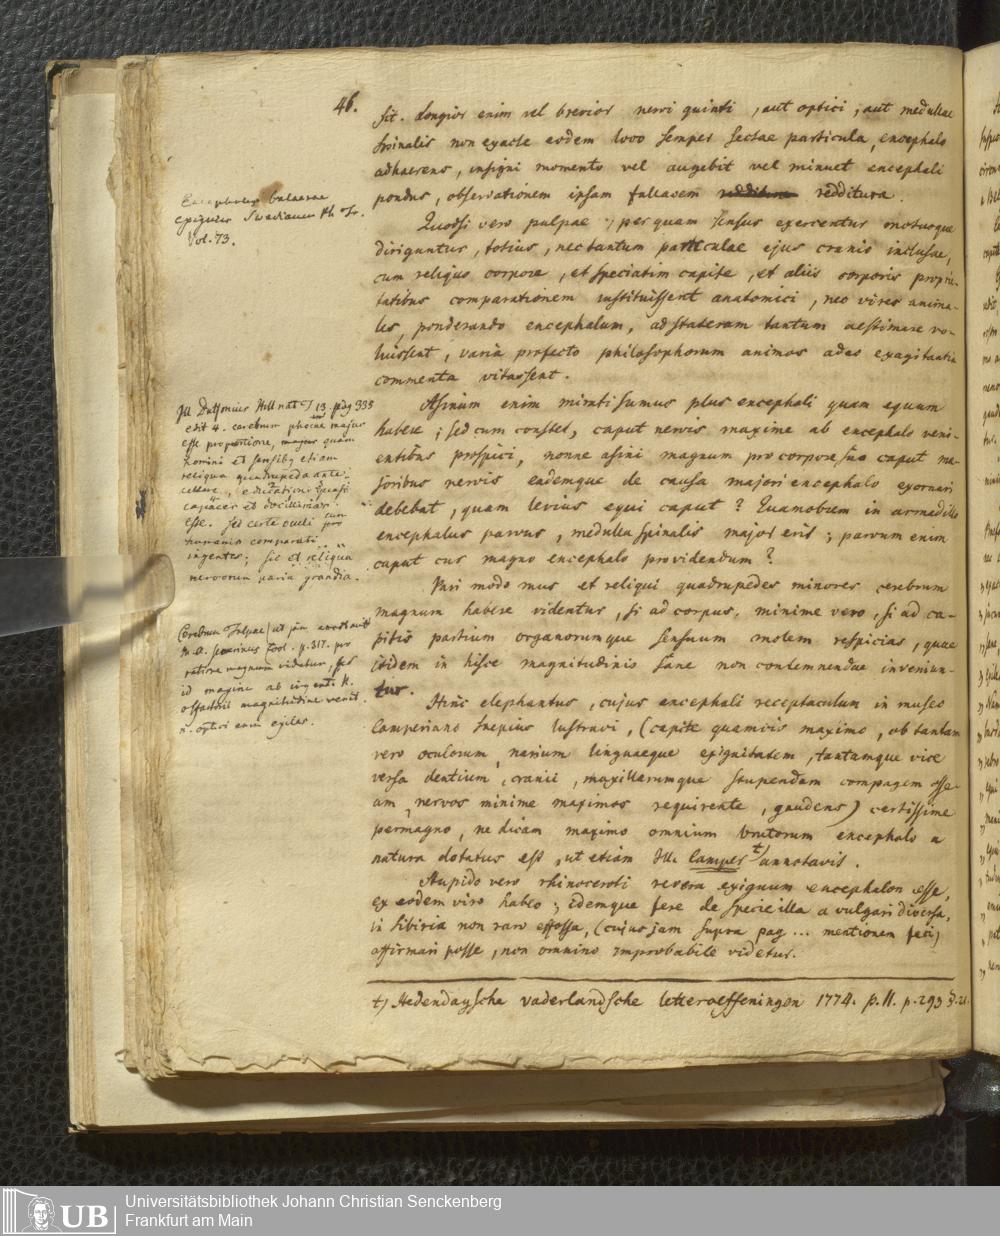 46.
sit. Longior enim vel brevior nervi quinti, aut optici, aut medullae
spinalis non exacte eodem loco semper sectae particula, encephalo
adhaerens, insigni momento vel augebit vel minuet encephali
pondus, observationem ipsam fallacem redditura redditura.
Quodsi vero pulpae, per quam sensus exercentur motusque
diriguntur, totius, nec tantum particulae ejus cranio inclusae,
cum reliquo corpore, et speciatim capite, et aliis corporis proprie-
tatibus comparationem instituissent anatomici, nec vires anima-
les, ponderando encephalum, ad stateram tantum aestimare vo-
luissent, varia profecto philosophorum animos adeo exagitantia
commenta vitassent.
Asinum enim mirati sumus plus encephali quam equum
habere; sed cum constet, caput nervis maxime ab encephalo veni-
entibus prospici, nonne asini magnum pro corpore suo caput ma-
joribus nervis eademque de causa majori encephalo exornari
debebat, quam levius equi caput? Quamobrem in armadillo
encephalus parvus, medulla spinalis major erit; parvum enim
caput cui magno encephalo providendum?
Pari modo mus et reliqui quadrupedes minores cerebrum
magnum habere videntur, si ad corpus, minime vero, si ad ca-
pitis partium organorumque sensuum molem respicias, quae
itidem in hisce magnitudinis sane non contemnendae inveniun-
tur.
Hinc elephantus, cujus encephali receptaculum in museo
Camperiano saepius lustravi, (capite quamvis maximo, ob tantam
vero oculorum, narium linguaeque exiguitatem, tantamque vice
versa dentium, cranii, maxillarumque stupendam compagem osse-
am, nervos minime maximos requirente, gaudens) certissime
permagno, ne dicam maximo omnium brutorum encephalo a
natura dotatus est, ut etiam Ill. Camper †) annotavit.
Stupido vero rhinoceroti revera exiguum encephalon esse,
ex eodem viro habeo; idemque fere de specie illa a vulgari diversa,
in Sibiria non raro effossa, (cujus jam supra pag ... mentionem feci)
affirmari posse, non omnino improbabile videtur.
†) Hedendaysche vaderlandsche letteroeffeningen 1774. p. II. p. 293
Encephalus balaenae
exiguus Ph. Tr.
Vol. 73.
Ill Buffonius Hist nat T 13. pag 335
edit 4. cerebrum phocae majus
esse proportione, quam
homini et sensibus etiam
reliqua quadrupeda ante-
cellere, educationis quasi
capacer et docilitatis
esse. sed certe oculi
humanis comparati
ingentes; sic et reliqua
nervorum paria grandia.
Cerebrum Talpae, ut jam
Zool. p. 317. pro
ratione magnum videtur, sed
id maxime ab ingenti
olfactorii magnitudine venit.
n. optici enim exiles.
Universitätsbibliothek Johann Christian Senckenberg
Frankfurt am Main
UB